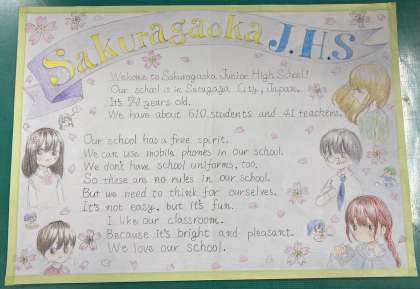 Sakuragaoka J.H.S
Welcome to Sakuragaoka Junior High School!
Our school is in Setagaya City, Japan.
It's 74 years old.
We have about 610 students and 41 teachers.
Our school has a free spirit.
We can use mobile phones in our school.
We don't have school uniforms, too.
So these are no rules in our school.
But we need to think for ourselves.
It's not easy, but it's fun.
I like our classroom.
Because it's bright and pleasant.
We love our school.